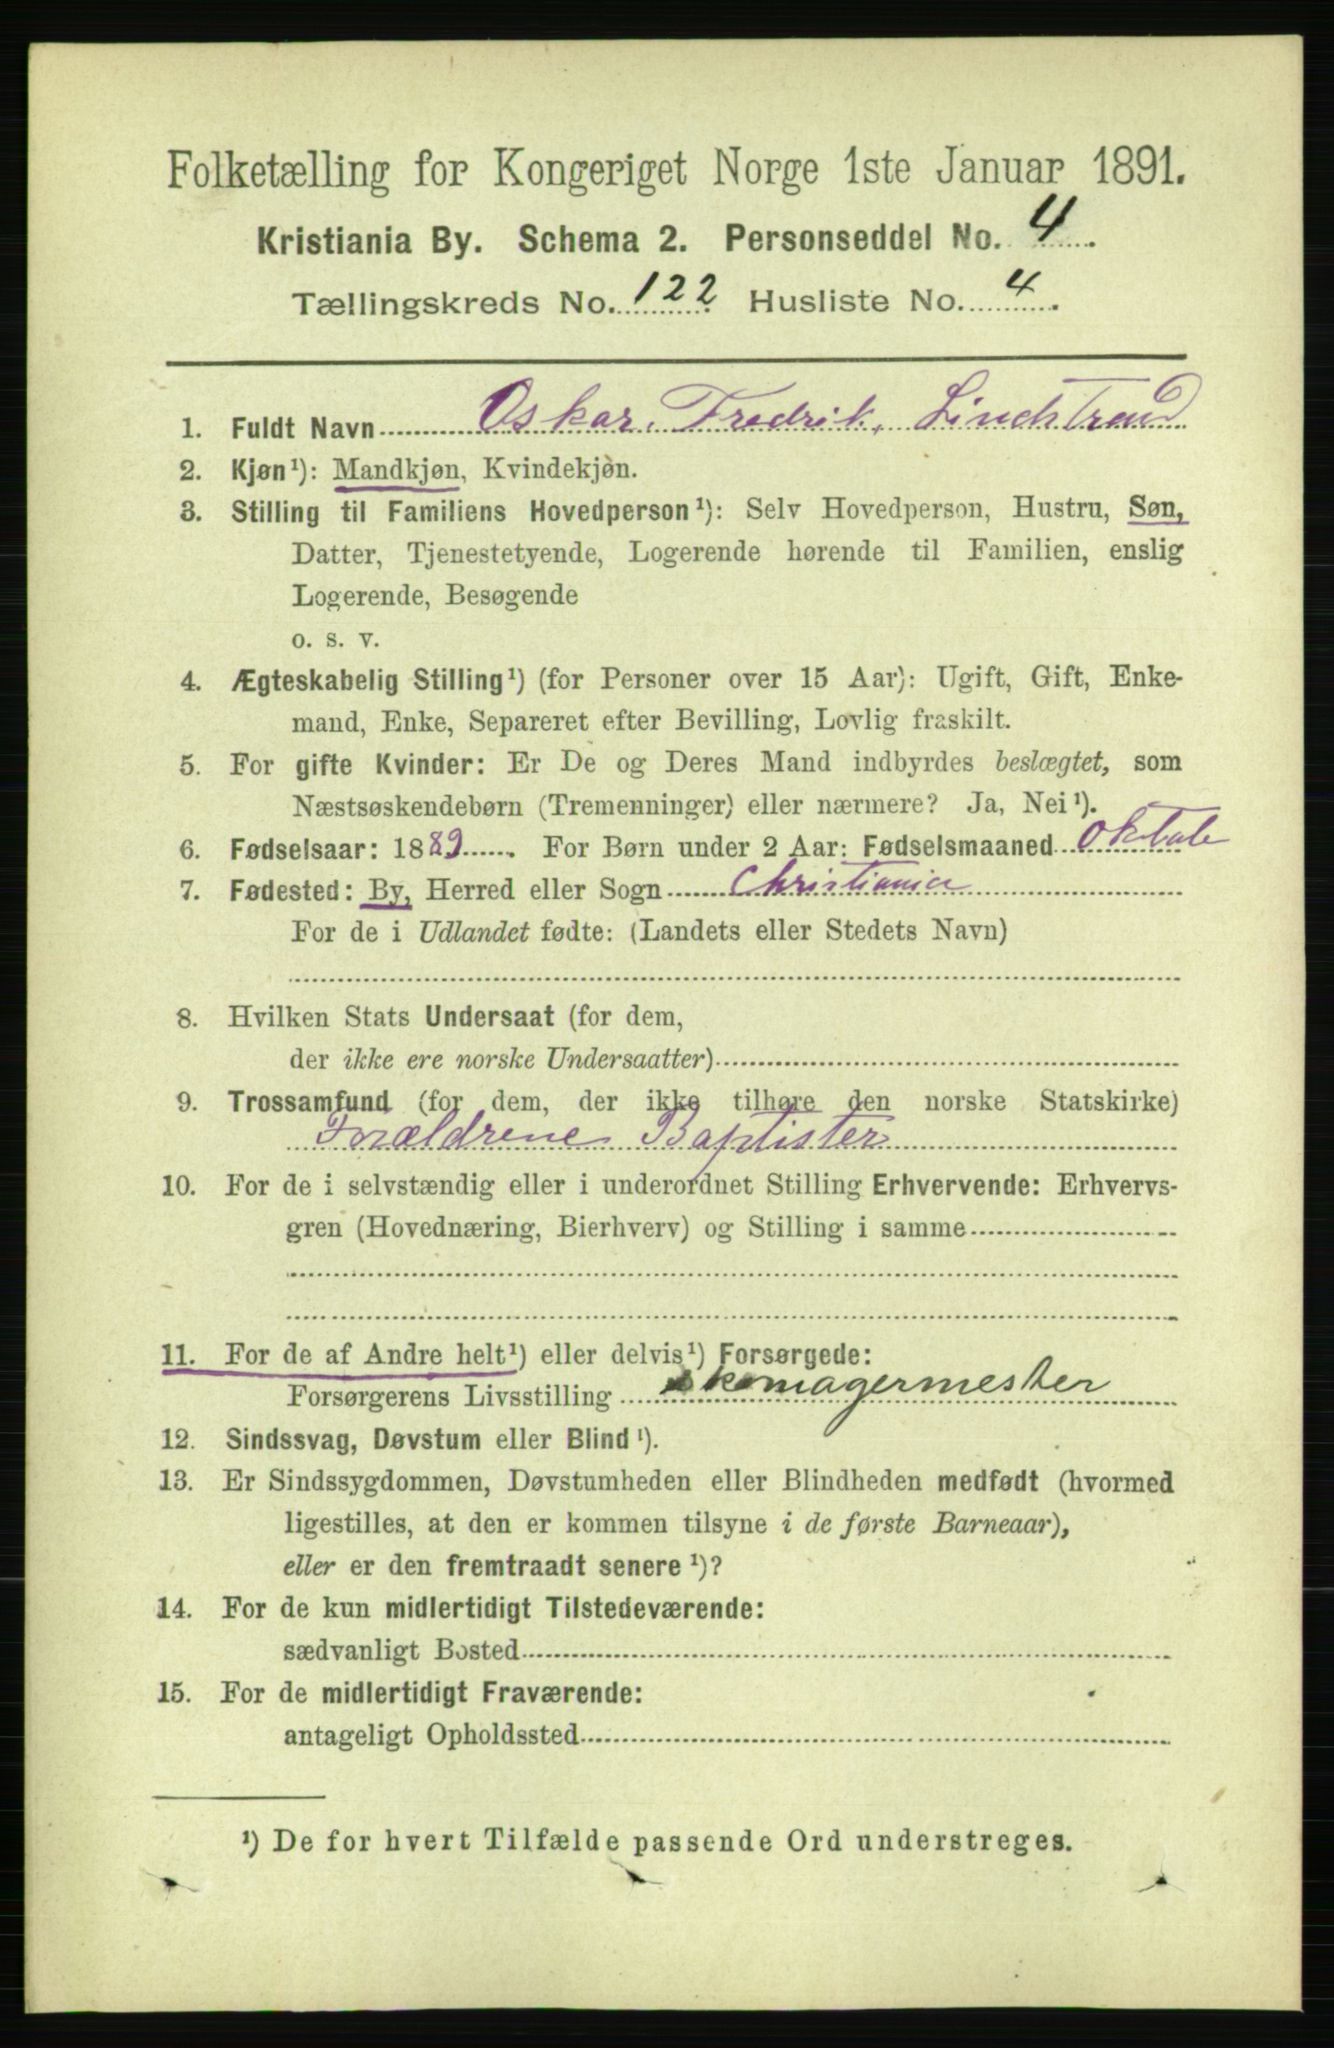 Folketælling for Kongeriget Norge 1ste Januar 1891.
Kristiania By. Schema 2. Personseddel No. 4
Tællingskreds No. 122 Husliste No. 4
1. Fuldt Navn Oskar. Fredrik. Lindstrand
2. Kjøn¹): Mandkjøn, Kvindekjøn.
3. Stilling til Familiens Hovedperson¹): Selv Hovedperson, Hustru, Søn,
Datter, Tjenestetyende, Logerende hørende til Familien, enslig
Logerende, Besøgende
o. s. v.
4. Ægteskabelig Stilling¹) (for Personer over 15 Aar): Ugift, Gift, Enke-
mand, Enke, Separeret efter Bevilling, Lovlig fraskilt.
5. For gifte Kvinder: Er De og Deres Mand indbyrdes beslægtet, som
Næstsøskendebørn (Tremenninger) eller nærmere? Ja, Nei¹).
6. Fødselsaar: 1889 For Børn under 2 Aar: Fødselsmaaned
7. Fødested: By, Herred eller Sogn Christiania
For de i Udlandet fødte: (Landets eller Stedets Navn)
8. Hvilken Stats Undersaat (for dem,
der ikke ere norske Undersaatter)
9. Trossamfund (for dem, der ikke tilhøre den norske Statskirke)
Forældrene Baptister
10. For de i selvstændig eller i underordnet Stilling Erhvervende: Erhvervs-
gren (Hovednæring, Bierhverv) og Stilling i samme
11. For de af Andre helt¹) eller delvis¹) Forsørgede:
Forsørgerens Livsstilling skomagermester
12. Sindssvag, Døvstum eller Blind¹).
13. Er Sindssygdommen, Døvstumheden eller Blindheden medfødt (hvormed
ligestilles, at den er kommen tilsyne i de første Barneaar),
eller er den fremtraadt senere¹)?
14. For de kun midlertidigt Tilstedeværende:
sædvanligt Bosted
15. For de midlertidigt Fraværende:
antageligt Opholdssted
¹) De for hvert Tilfælde passende Ord understreges.